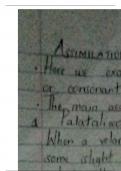 ASSIMILATIO
• Here we exa
or consonant
• The main ass
1 palatalisa
When a velar
some slight